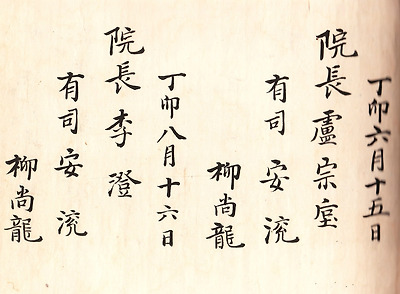 丁卯六月十五日
院長盧宗垕
有司安沇
柳尚龍
丁卯八月十六日
院長李澄
有司安沇
柳尚龍